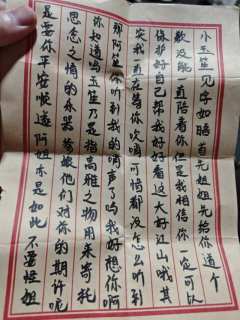 小玉笙见字如晤首先姐姐先给你道个
歉没能一直陪着你但是我相信你一定可以
保护好自己帮我好好看这大好江山哦其
实我一直在等你吹哨可惜都没怎么听到
那阿笙你听到我的哨声了吗我好想你啊
你知道吗玉笙乃是指高雅之物用来寄托
思念之情的乐器爹娘他们对你的期许呢
是要你平安顺遂阿姐亦是如此不要怪姐